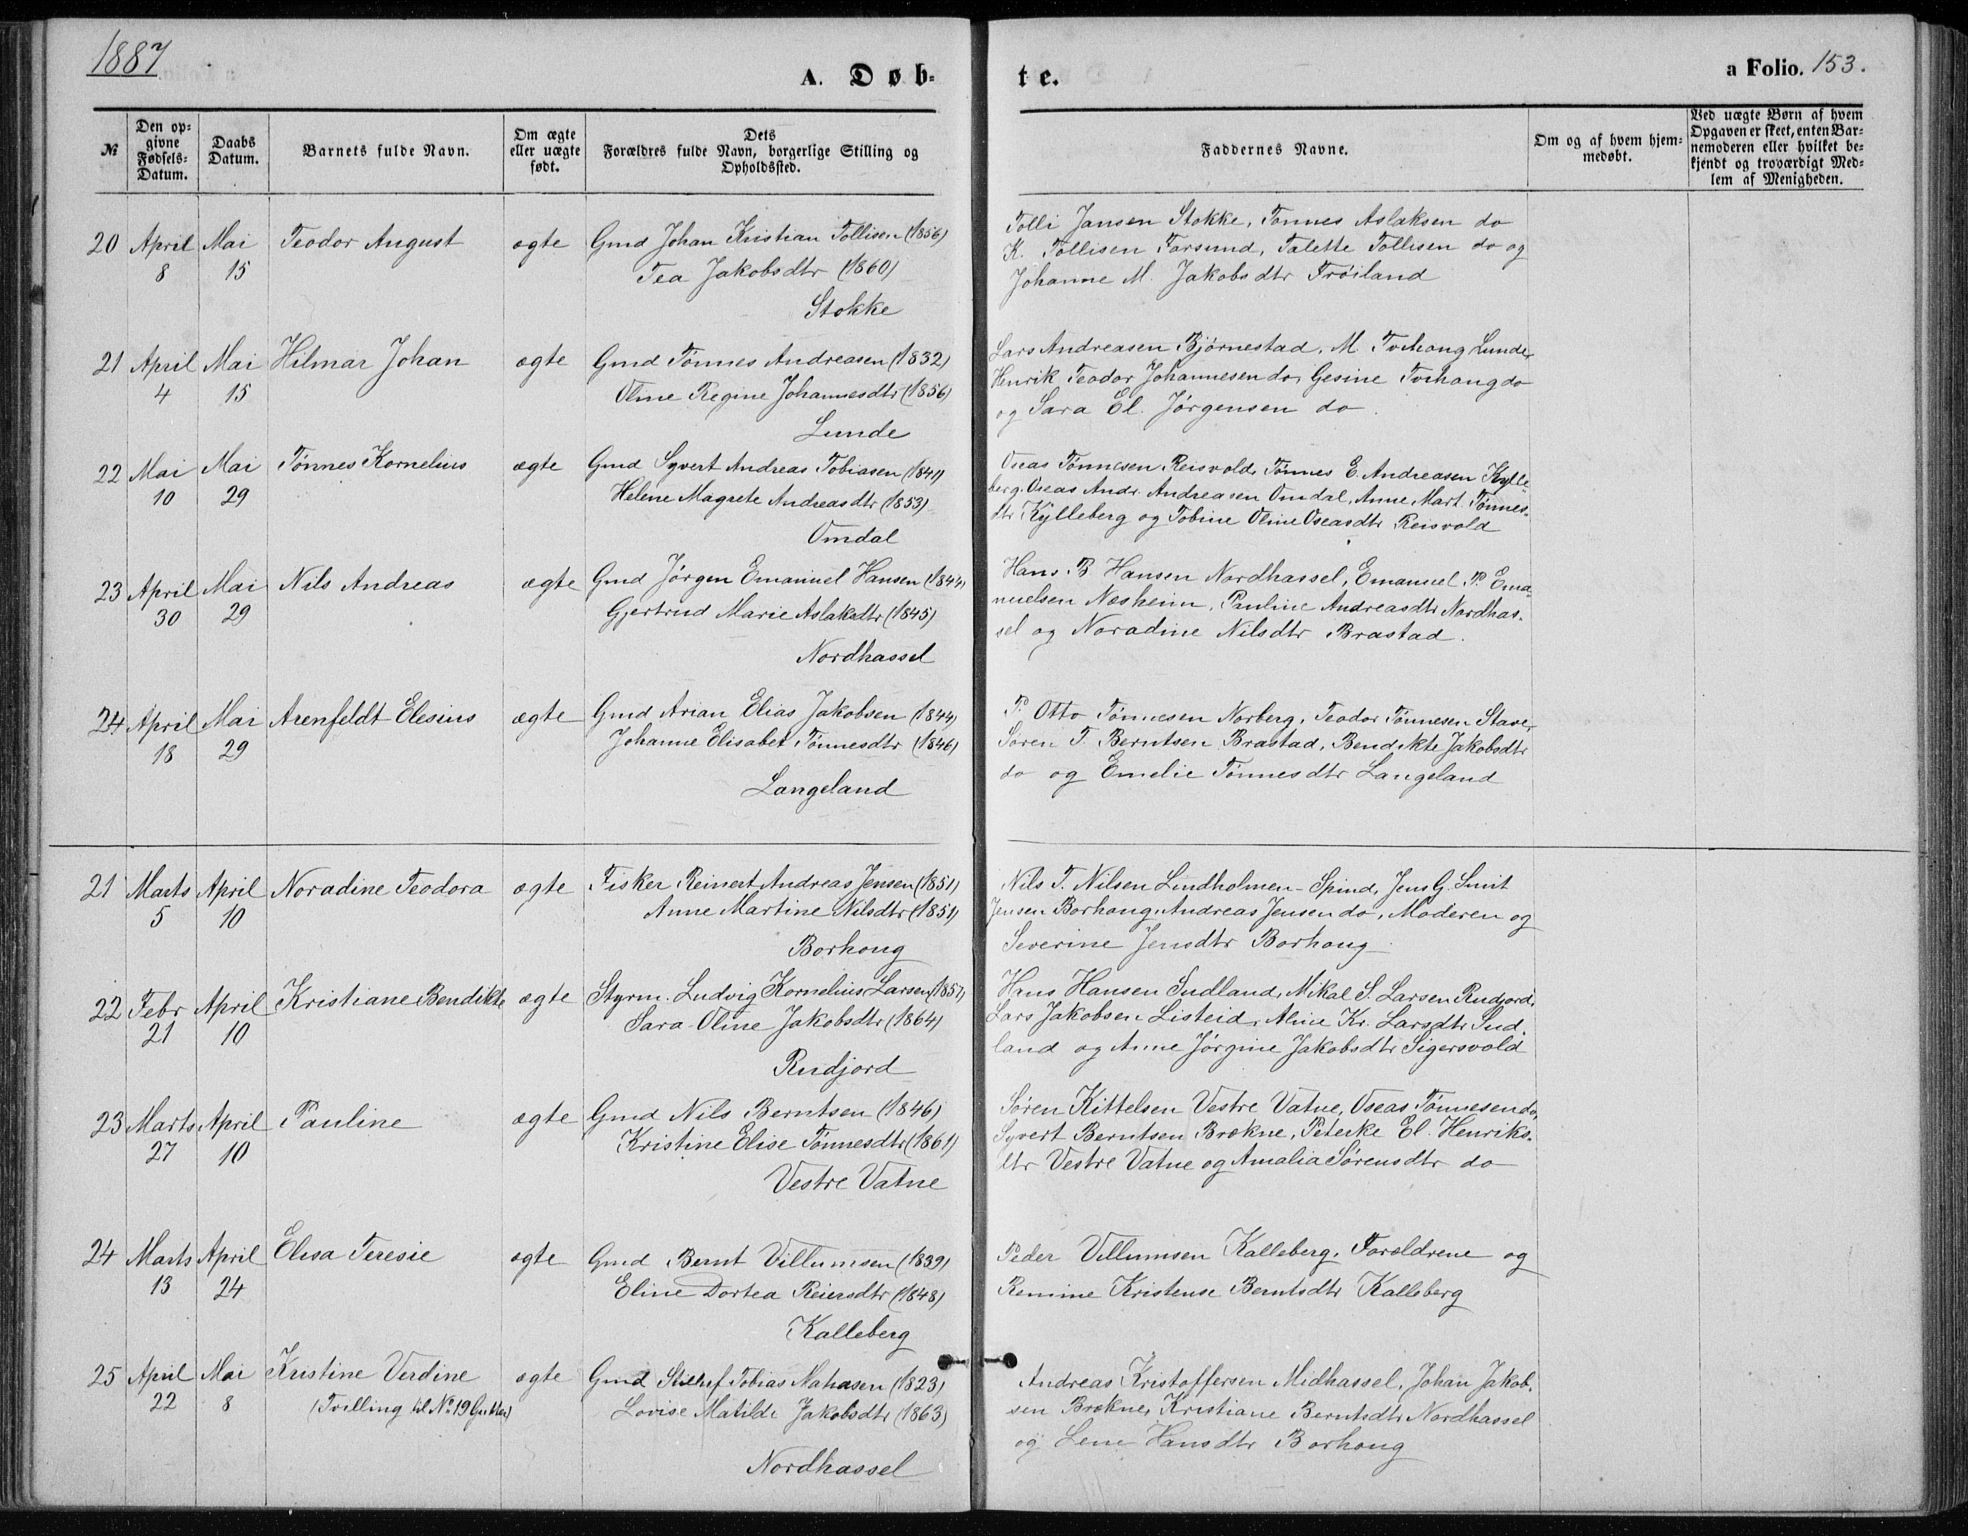 1887
A. Døb-
te.
a Folio. 153.
№
Den op-
givne
Fødsels-
Datum.
Daabs
Datum.
Barnets fulde Navn.
Om ægte
eller uægte
født.
Dets
Forældres fulde Navn, borgerlige Stilling og
Opholdssted.
Faddernes Navne.
Om og af hvem hjem-
medøbt.
Ved uægte Børn af hvem
Opgaven er skeet, enten Bar-
nemoderen eller hvilket be-
kjendt og troværdigt Med-
lem af Menigheden.
20 April 8 Mai 15 Teodor August ægte Gmd Johan Kristian Tollisen (1856)
Tea Jakobsdtr (1860)
Stokke
Tolli Jansen Stokke, Tønnes Aslaksen do
K. Tollisen Farsund, Talette Tollisen do og
Johanne M. Jakobsdtr Frøiland
21 April 4 Mai 15 Hilmar Johan ægte Gmd Tønnes Andreasen (1832)
Oline Regine Johannesdtr (1856)
Lunde
Lars Andreasen Bjørnestad, M. Tvihoug Lunde,
Henrik Teodor Johannesen do, Gesine Tvihoug do
og Sara El. Jørgensen do.
22 Mai 10 Mai 29 Tønnes Kornelius ægte Gmd Syvert Andreas Tobiasen (1841)
Helene Magrete Andreasdtr (1853)
Omdal
Oseas Tønnesen Reisvold, Tønnes E. Andreasen Kylle-
berg, Oseas Andr. Andreasen Omdal, Anne Mart. Tønnes-
dtr Kylleberg og Tobine Oline Oseasdtr Reisvold
23 April 30 Mai 29 Nils Andreas ægte Gmd Jørgen Emanuel Hansen (1844)
Gjertrud Marie Aslaksdtr (1845)
Nordhassel
Hans B Hansen Nordhassel, Emanuel P. Ema-
nuelsen Næsheim, Pauline Andreasdtr Nordhas-
sel og Noradine Nilsdtr Brastad.
24 April 18 Mai 29 Arenfeldt Elesius ægte Gmd Arian Elias Jakobsen (1844)
Johanne Elisabet Tønnesdtr (1846)
Langeland
P. Otto Tønnesen Norberg, Teodor Tønnesen Stave,
Søren T. Berntsen Brastad, Bendikte Jakobsdtr
do og Emelie Tønnesdtr Langeland
21 Marts 5 April 10 Noradine Teodora ægte Fisker Reinert Andreas Jensen (1851)
Anne Martine Nilsdtr (1851)
Borhoug
Nils T. Nilsen Lindholmen - Spind, Jens G. Smit
Jensen Borhoug, Andreas Jensen do, Moderen og
Severine Jensdtr Borhoug.
22 Febr 21 April 10 Kristiane Bendikte ægte Styrm. Ludvig Kornelius Larsen (1857)
Sara Oline Jakobsdtr (1864)
Rudjord
Hans Hansen Sudland, Mikal S. Larsen Rudjord,
Lars Jakobsen Listeid, Aline Kr. Larsdtr Sud-
land og Anne Jørgine Jakobsdtr Sigersvold
23 Marts 27 April 10 Pauline ægte Gmd Nils Berntsen (1846)
Kristine Elise Tønnesdtr (1861)
Vestre Vatne
Søren Kittelsen Vestre Vatne, Oseas Tønnesen do,
Syvert Berntsen Brækne, Peterke El. Henriks-
dtr Vestre Vatne og Amalia Sørensdtr do
24 Marts 13 April 24 Elisa Teresie ægte Gmd Bernt Villumsen (1839)
Eline Dortea Reiersdtr (1848)
Kalleberg
Peder Villumsen Kalleberg, Forældrene og
Remine Kristense Berntsdtr Kalleberg
25 April 22 Mai 8 Kristine Verdine ægte Gmd Tobias (1823)
(Tvilling til No 19 Gutter)
Lovise Matilde Jakobsdtr (1863)
Nordhassel
Andreas Kristoffersen Midhassel, Johan Jakob-
sen Brækne, Kristiane Berntsdtr Nordhassel
og Lene Hansdtr Borhoug